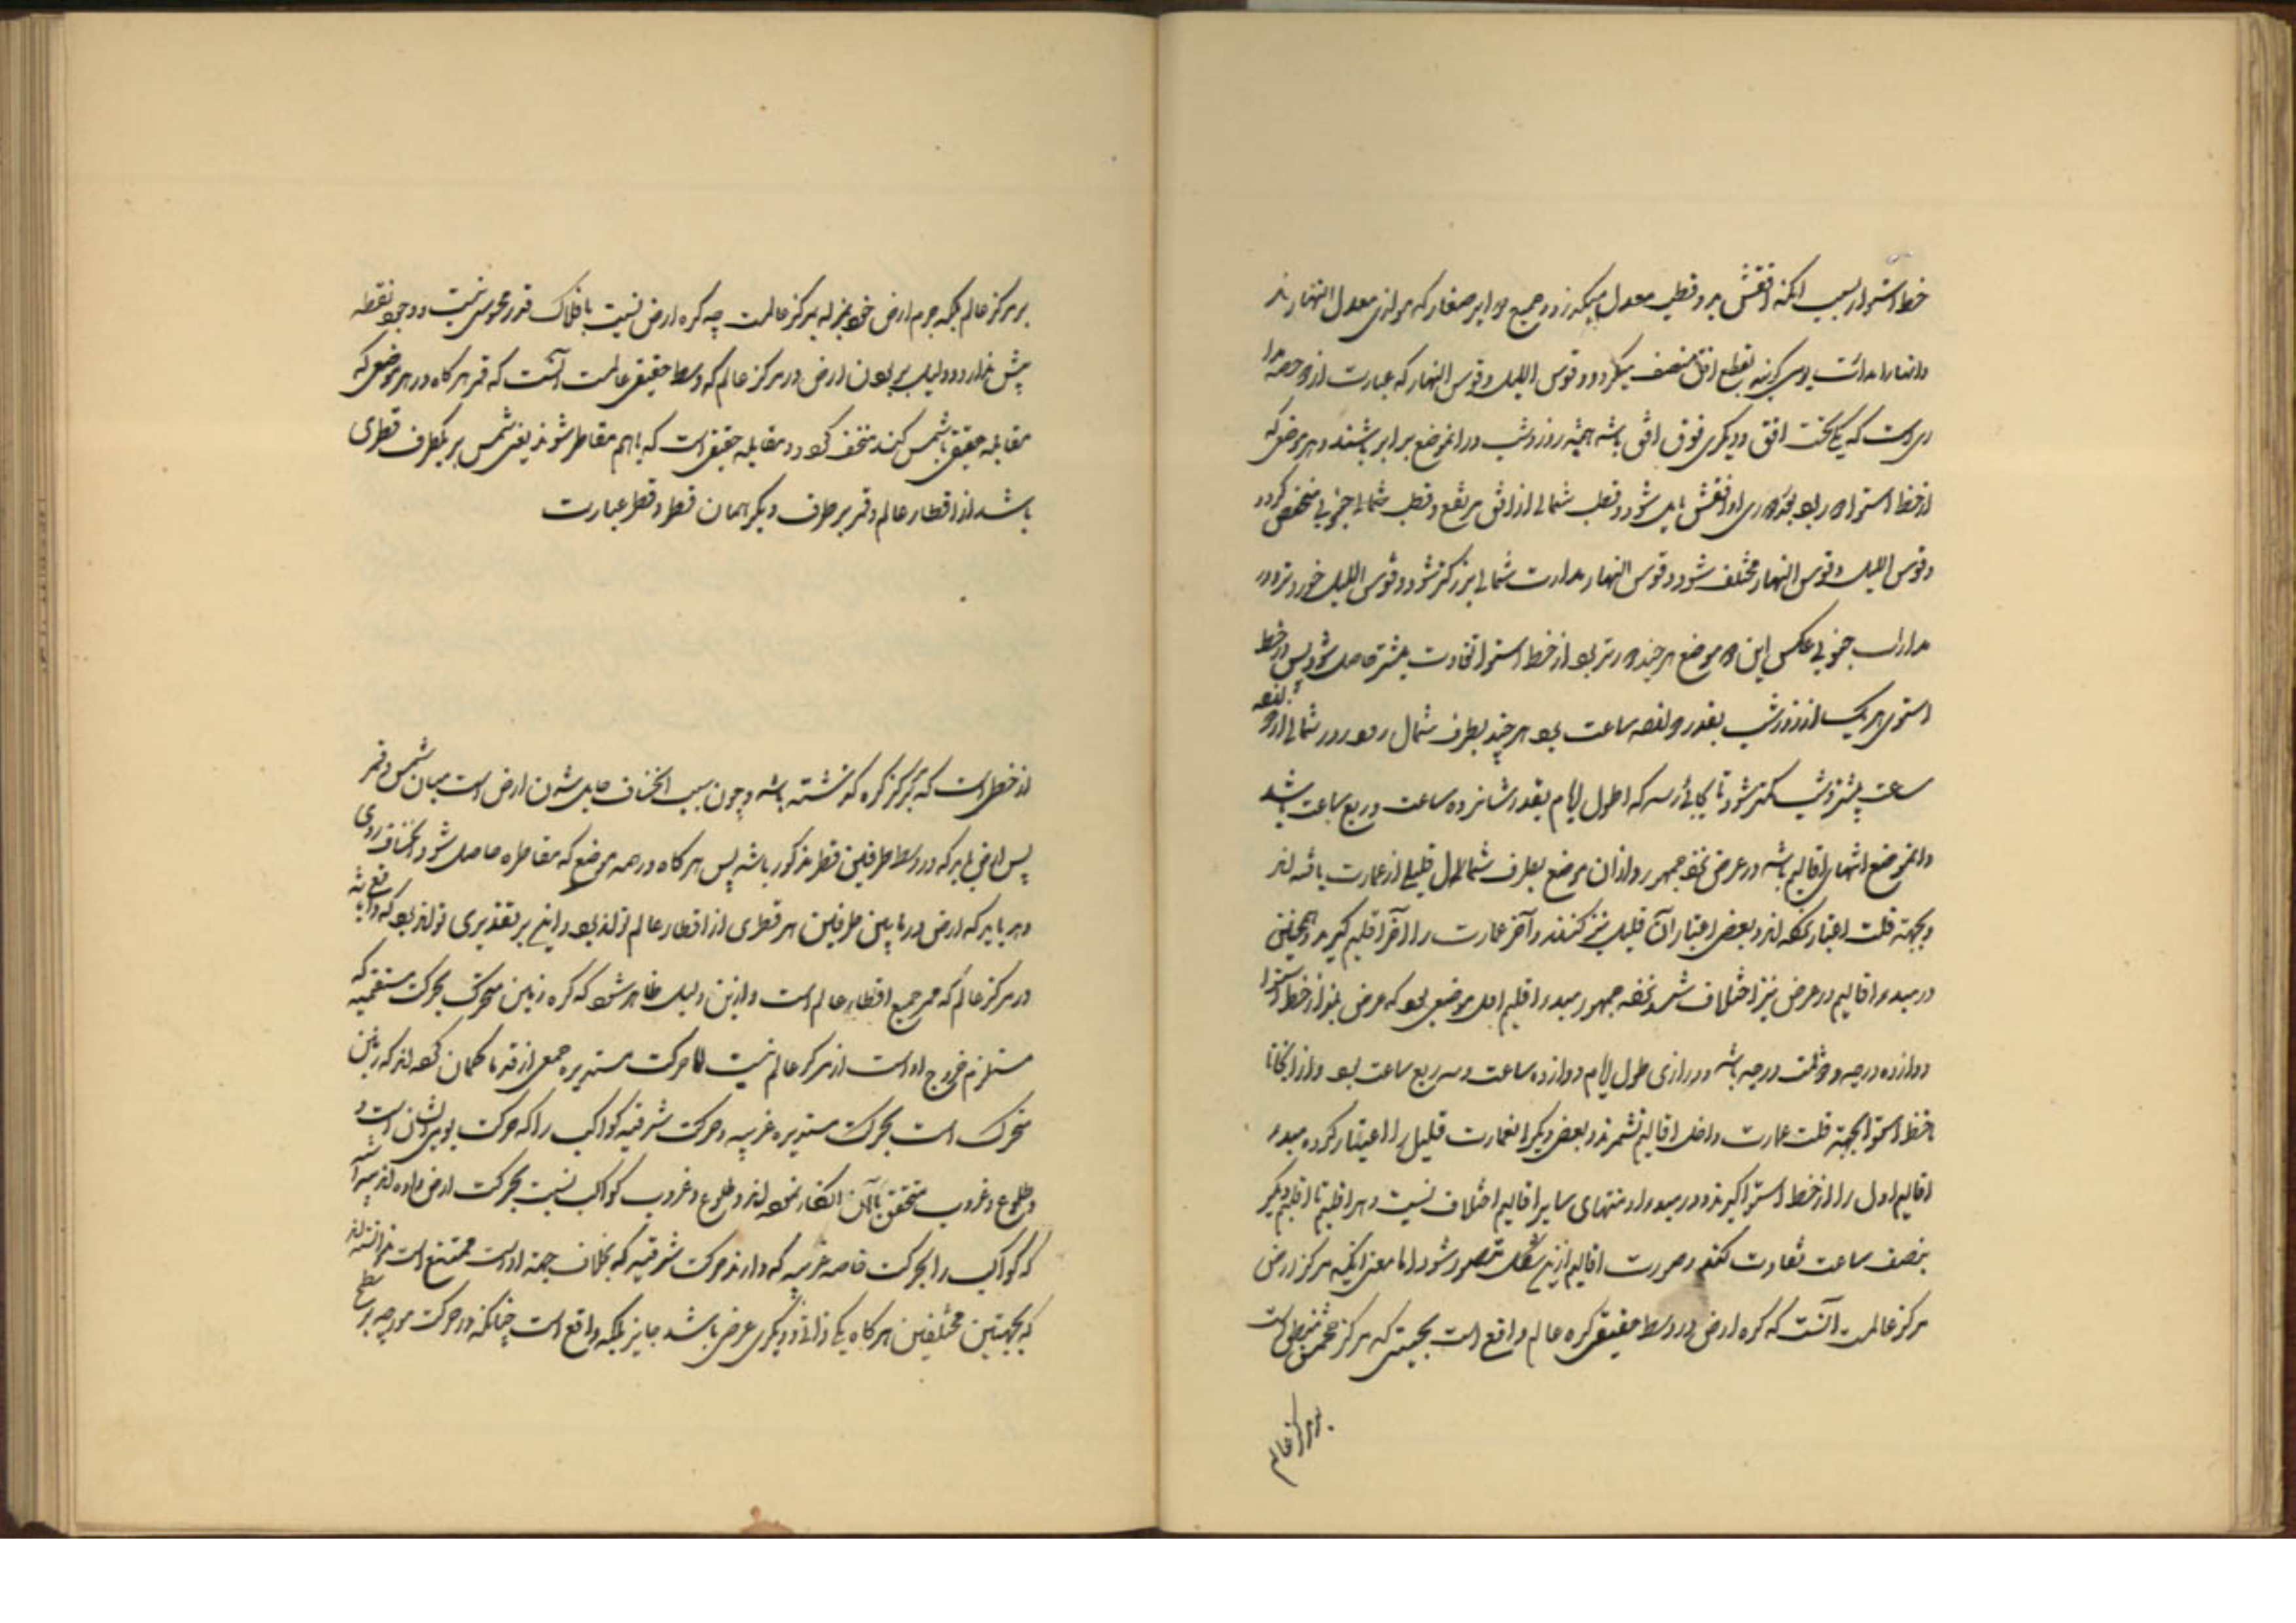 خط استوا بسبب آنکه افقش بر دو قطب معدل میگذرد و جمیع مدارات صغار که موازی معدل النهارند
و قوس اللیل و قوس النهار که عبارت از دو حصه مدا
ری است که یکی تحت افق و دیگری فوق افق باشد همیشه روز و شب در آنموضع برابر باشند و هر موضعی که
از خط استوا دور بود افقش مایل شود و قطب شمالی از افق مرتفع و قطب جنوبی منخفض گردد
و قوس اللیل و قوس النهار مختلف شود و قوس النهار مدارات شمالی بزرگتر شود و قوس اللیل خوردتر و در
مدارات جنوبی عکس این و موضع هر چند دورتر بود از خط استوا تفاوت بیشتر حاصل شود پس در خط
استوی هر یک از روز و شب بقدر دوازده ساعت بود هر چند بطرف شمال رود روز شمالی از دوازده
ساعت بیشتر و شب کمتر شود تا بجائی رسد که اطول ایام بقدر شانزده ساعت و ربع ساعت باشد
و آنموضع انتهای اقالیم باشد در عرض نزد جمهور و از آن موضع بطرف شمال قلیلی از عمارت یافته اند
و بجهة قلت اعتبار نکرده اند و بعضی اعتبار آن قلیل نیز کنند و آخر عمارت را آخر اقلیم گیرند و همچنین
در مبدء اقالیم در عرض نیز اختلاف شد نزد جمهور مبدء اقلیم اول موضعی بود که عرض او از خط استوا
دوازده درجه و دو ثلث درجه باشد و درازی طول ایام دوازده ساعت و سه ربع ساعت بود و از آنجا تا
خط استوا بجهة قلت عمارت داخل اقالیم نشمرند و بعضی دیگر آنعمارت قلیل را اعتبار کرده مبدء
اقالیم اول را از خط استوا گیرند و در مبدء و منتهای سایر اقالیم اختلاف نیست و هر اقلیم تا اقلیم دیگر
بنصف ساعت تفاوت کند و صورت اقالیم ازین شکل متصور شود اما معنی اینکه مرکز ارض
مرکز عالمست آنست که کره ارض در وسط حقیقی کره عالم واقع است بحیثیتی که مرکز حجمش منطبق است
بر مرکز عالم
بر مرکز عالم بلکه جرم ارض خود بمنزله مرکز عالمست چه کره ارض نسبت بافلاک قدر محسوس نیست و وجود نقطه
بیش ندارد و دلیل بر بودن ارض در مرکز عالم که وسط حقیقی عالمست آنست که قمر هر گاه در هر موضعی که
مقابله حقیقی با شمس کند منخسف گردد و مقابله حقیقی است که باهم مقاطر شوند یعنی شمس بر یکطرف قطری
باشد از اقطار عالم و قمر بر طرف دیگر همان قطر و قطر عبارت
از خطی است که بمرکز کره گذشته باشد و چون سبب انخساف حایل شدن ارض است میان شمس و قمر
پس ارض باید که در وسط طرفین قطر مذکور باشد پس هر گاه در همه موضع که مقاطره حاصل شود انخساف روی
دهد باید که ارض در مابین طرفین هر قطری از اقطار عالم تواند بود و این بر تقدیری تواند بود که واقع باشد
در مرکز عالم که ممر جمیع اقطار عالم است و ازین دلیل ظاهر شد که کره زمین متحرک بحرکت مستقیمه که
مستلزم خروج اوست از مرکز عالم نیست اما حرکت مستدیره جمعی از قدما گمان کرده اند که زمین
متحرک است بحرکت مستدیره غربیه و حرکت شرقیه کواکب را که حرکت یومیه است و
طلوع و غروب متحقق بآن انکار نموده اند و طلوع و غروب کواکب نسبت بحرکت ارض داده اند
که کواکب را بحرکت خاصه غربیه که دارند حرکت شرقیه که بخلاف جهة اوست ممتنع است ندانسته اند
که بجهتین مختلفین هر گاه یکی ذاتی و دیگری عرضی باشد جایز بلکه واقع است چنانکه در حرکت مورچه بر سطح